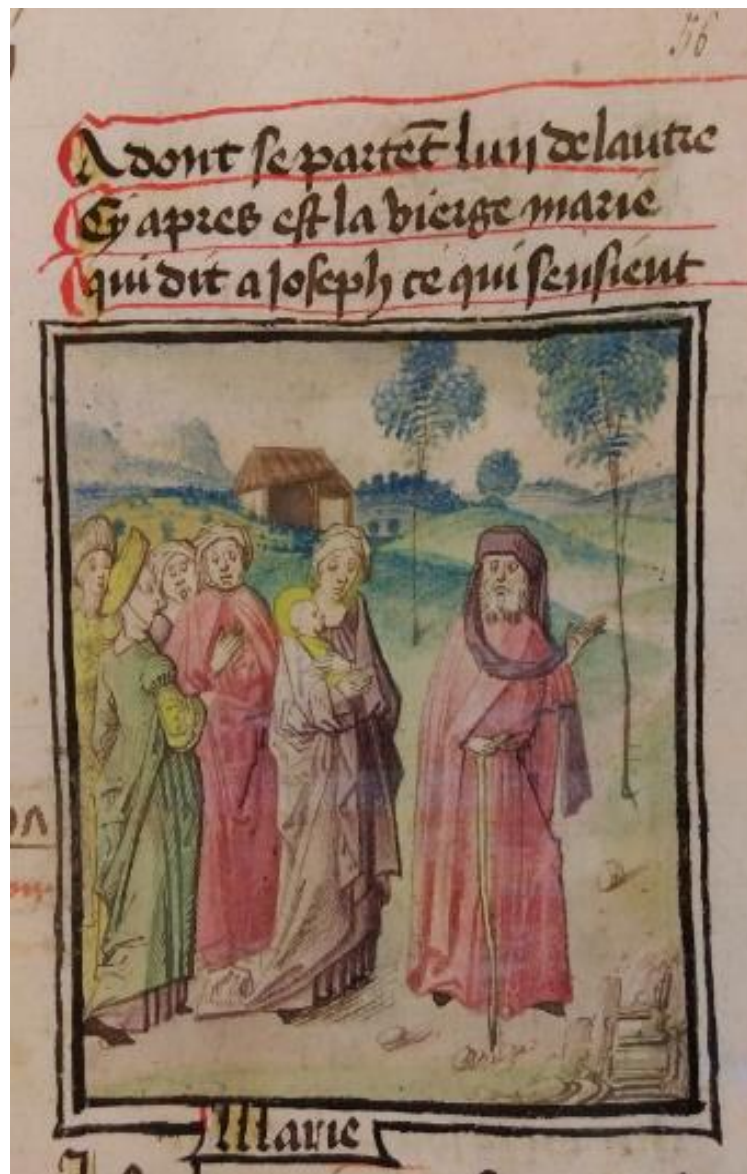 56
Adont se partēt lun de lautre
Cy apres est la vierge marie
qui dit a Joseph ce qui sensieut
Marie